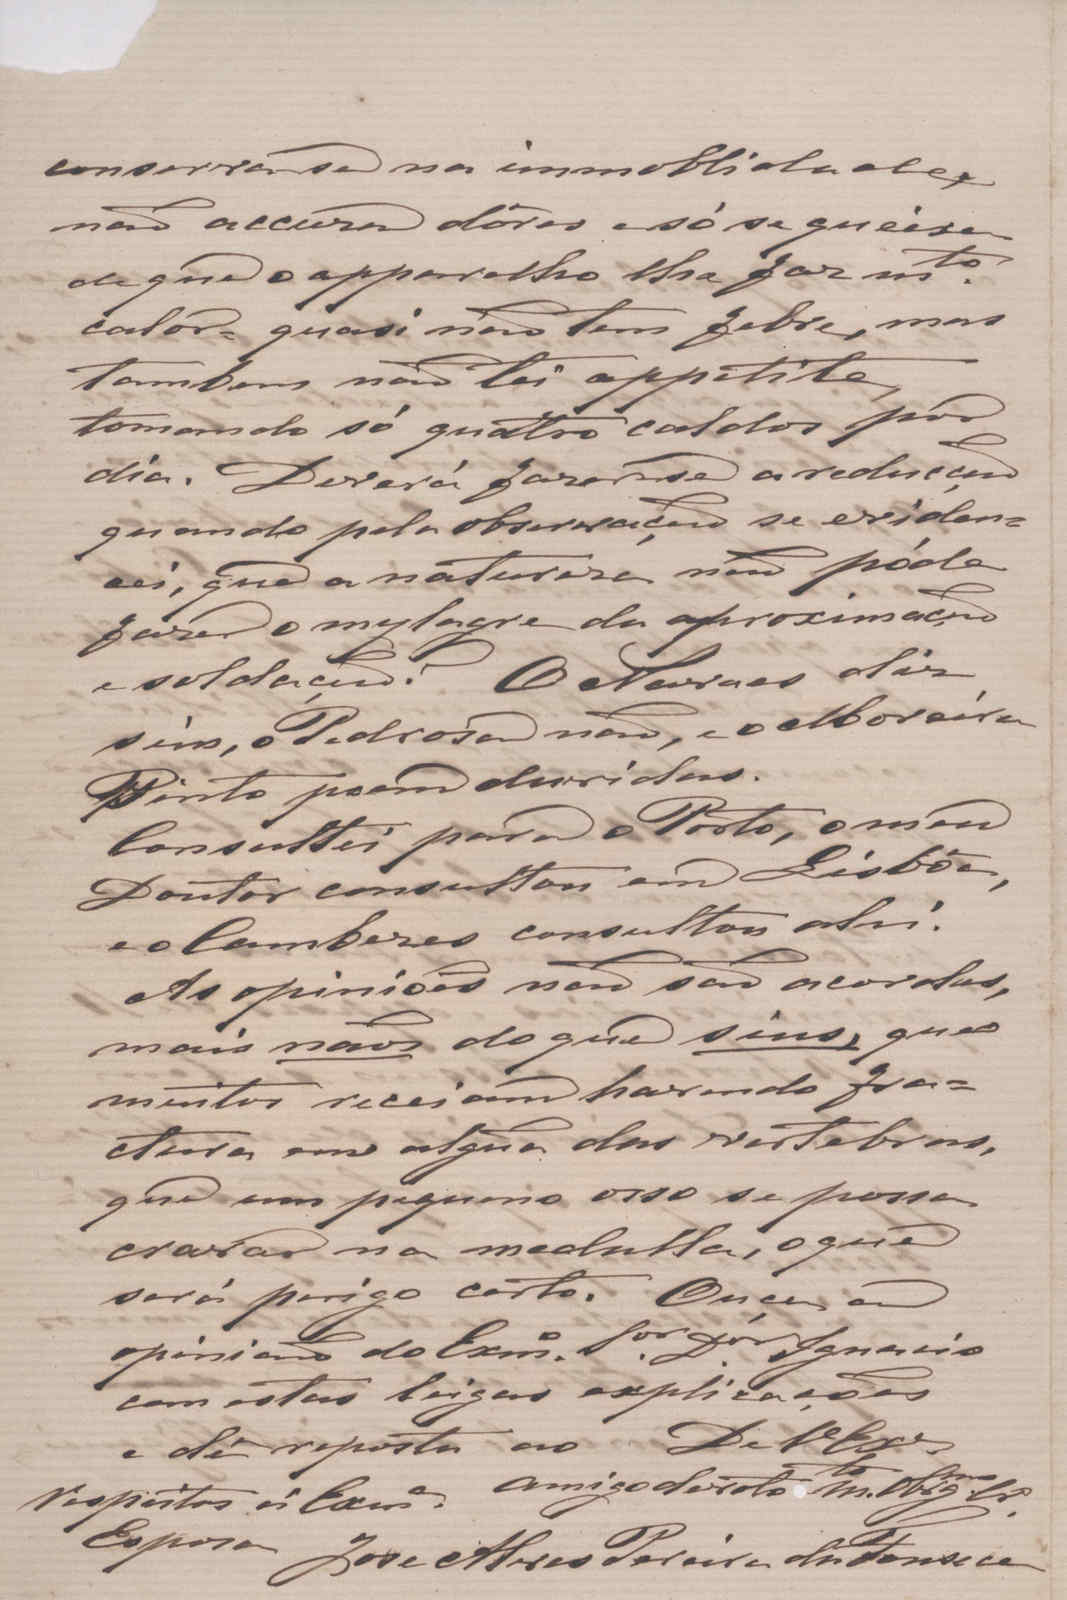 conservasse na immobilidade,
não accusa dôres e só se queixa
de que o apparelho lhe faz mto.
calor= quasi não tem febre, mas
tambem não tei appetite,
tomando só quatro caldos por
dia. Deverá fazer-se a reducção
quando pela observação se eviden=
cei, que a natureza não póde
fazer o mylagre da aproximação
e soldação? O Novaes diz
sim, o Pedrosa não, e o Moreira
Pinto poem duvidas.
Consultei para o Porto, o meu
Doutor consultou em Lisbôa,
e o Cambezes consultou ahi.
As opiniões não são acordes,
mais nãos do que sins, que
muitos receiam havendo fra=
ctura em algũa das vertebras,
que um pequeno osso se possa
cravar na medulla, o que
será perigo certo. Ouça a
opinião do Exmo. Sor. Dor. Ignacio
com estas leigas explicações
e dê reposta ao De V. Exa.
Respeitos á Exma. amigo devoto mto. Obrigmo. Cro.
Esposa Jose Alves Pereira da Fonseca